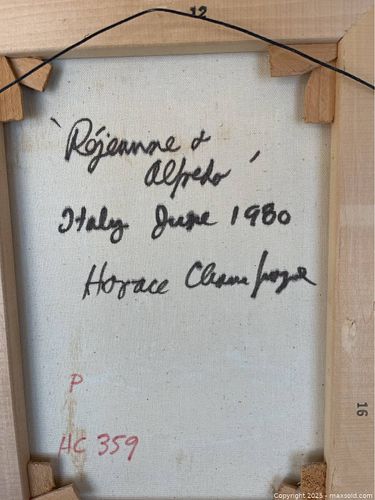 12
'Réjeanne &
Alfredo'
Italy June 1980
Horace Champagne
P
16
HC 359
Copyright 2025 - maxsold.com